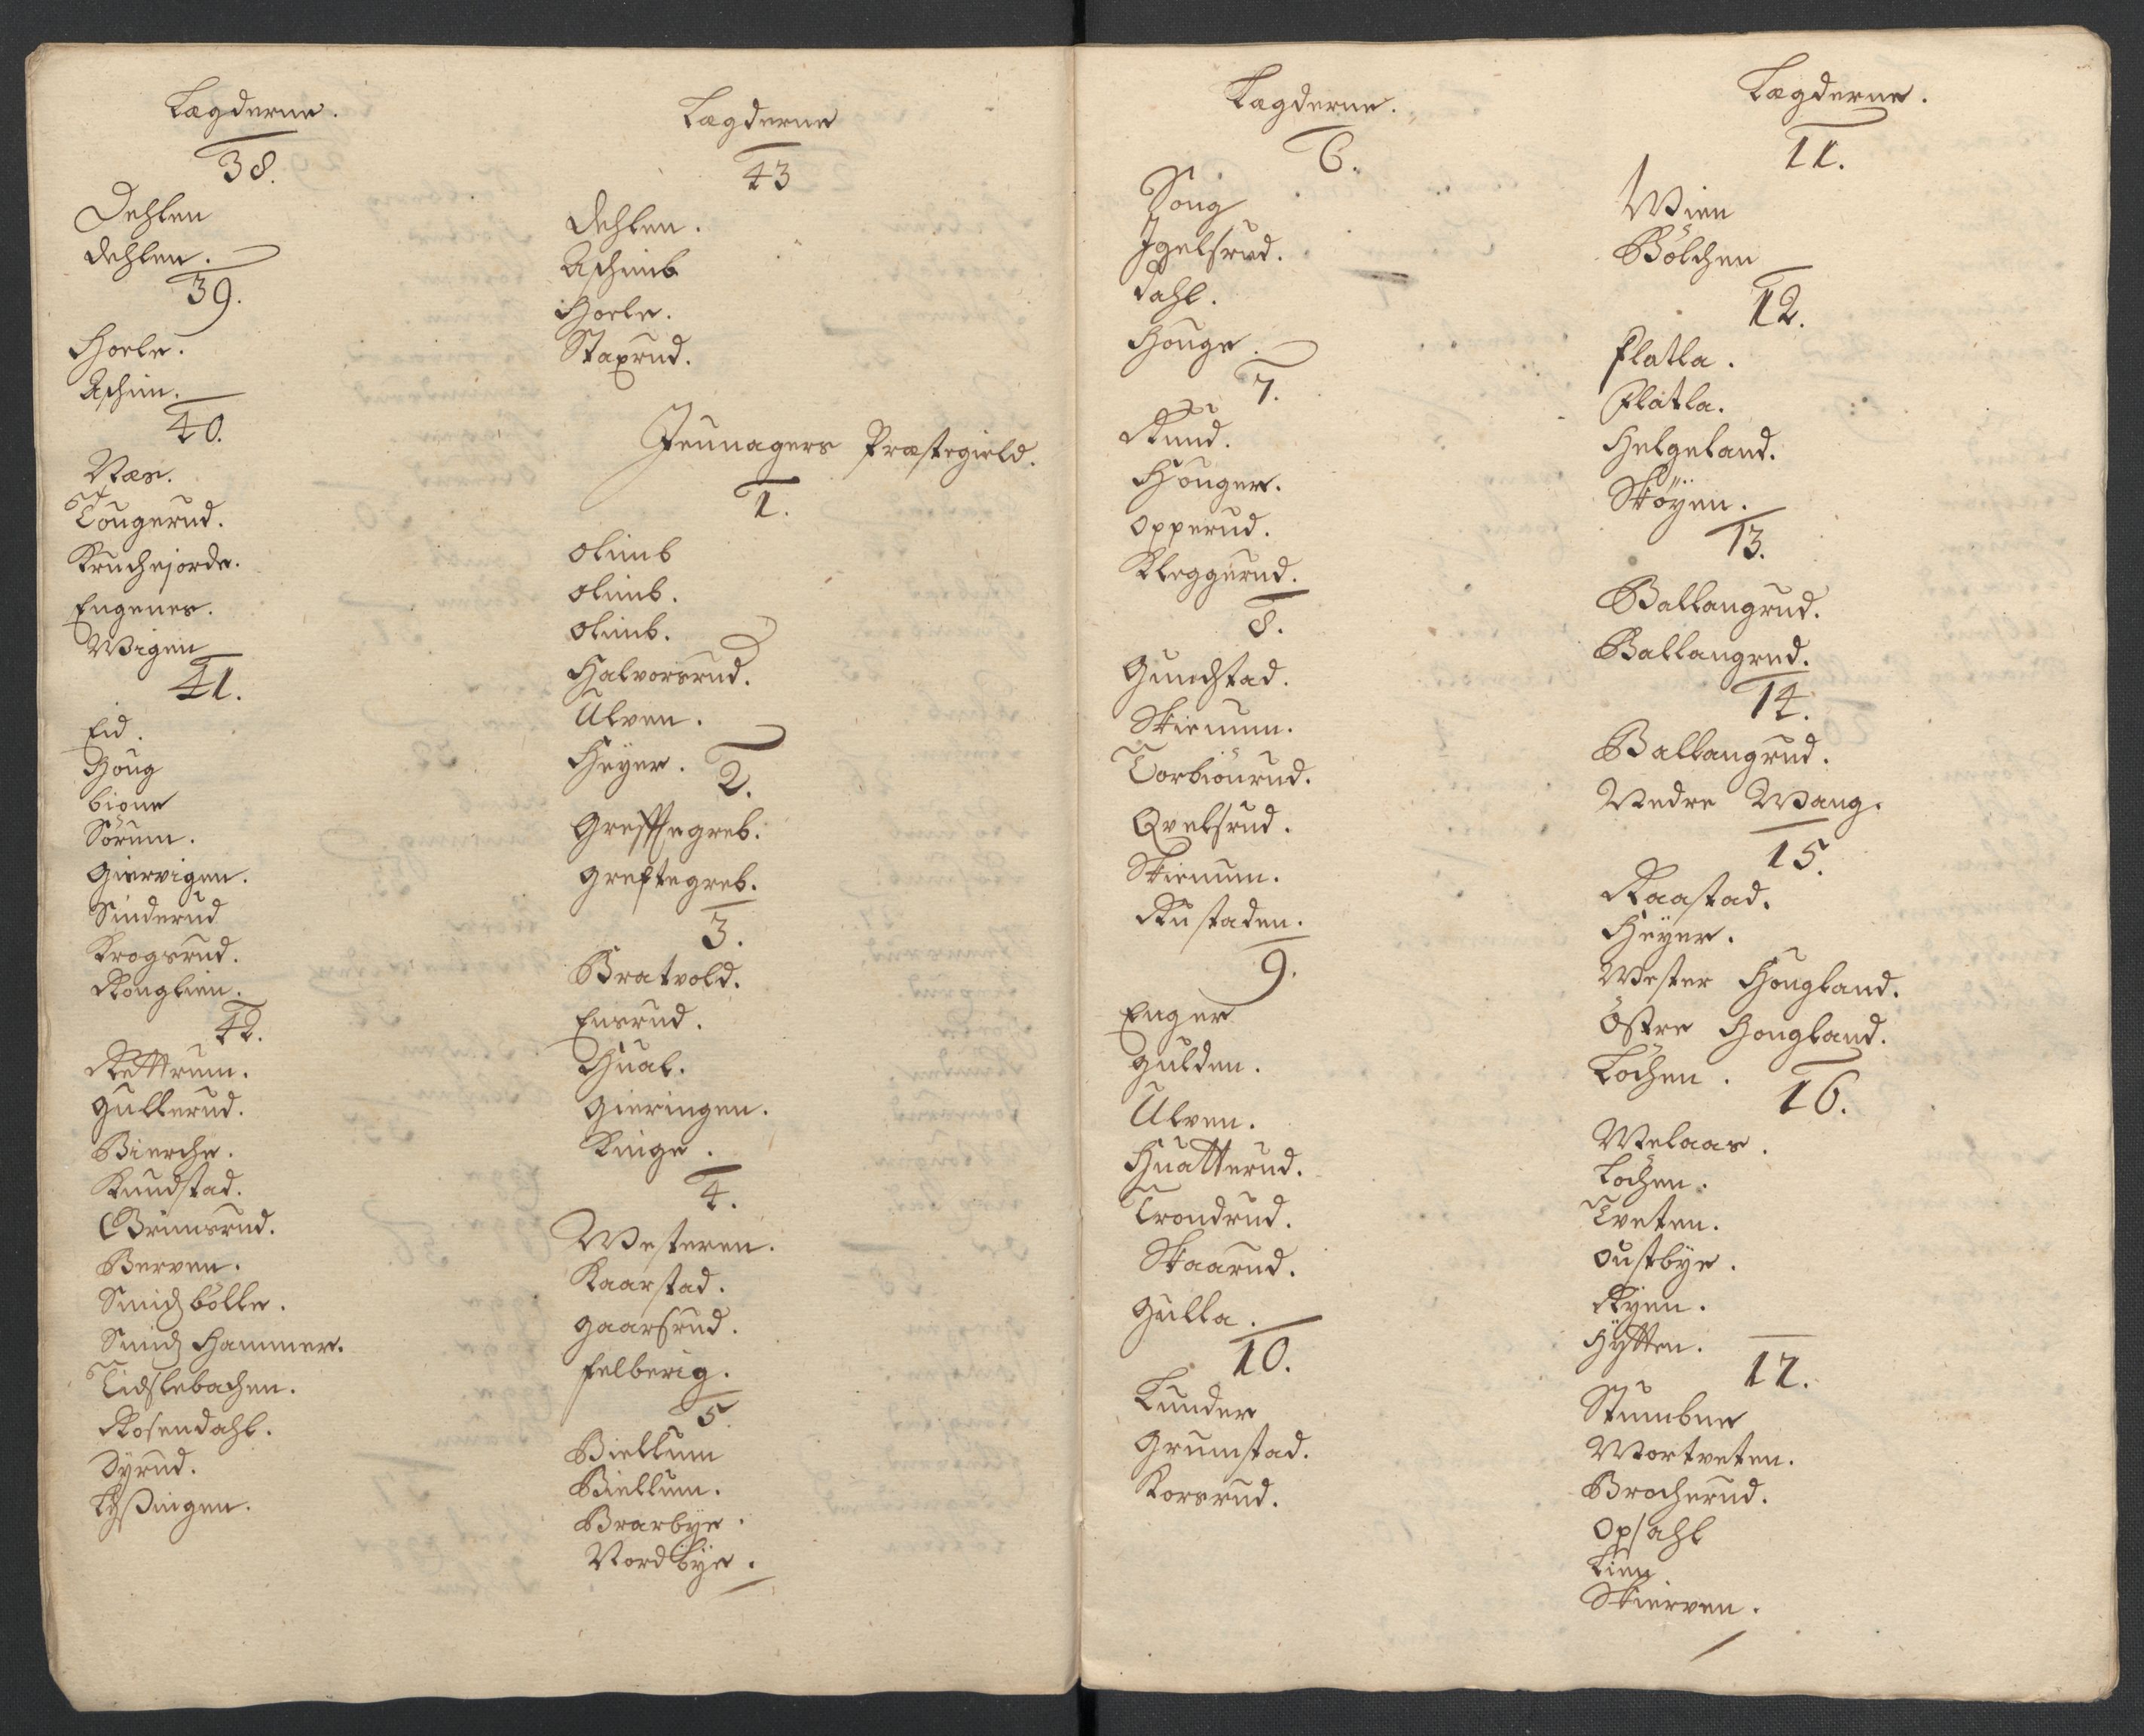 Lægderne.
38.
Dehlen
dehlen.
39.
Hoele.
Aschim.
40.
Næs.
Tougerud.
Kruchejorde.
Engenes.
Wigen
41.
Eid.
Houg
bione
Sörum.
Giervigen.
Sinderud
Krogsrud.
Ronglien.
42.
Rettrum.
Gullerud.
Bierche.
Kundstad.
Grimsrud.
Berven.
Smidzbölle.
Smidz Hammer.
Tidslebachen.
Rosendahl.
Dÿrud.
Lÿßingen.
Lægderne
43
Dehlen.
Aschimb
Hoele.
Staxrud.
Jeunagers Præstegield.
1.
Olimb
Olimb.
Olimb.
Halvorsrud.
Ulven.
Heÿer.
2.
Greffegreb.
Greftegreb.
3.
Bratvold.
Ensrud.
Hual.
Gieringen.
Kinge.
4.
Westeren.
Kaarstad.
Gaarsrud.
Felberig.
5
Biellum
Biellum.
Brarbÿe.
Nordbÿe.
Lægderne.
6.
Soug
Igelsrud.
Dahl.
Houge.
7.
Rund.
Hougen.
Opperud.
Kleggerud.
8.
Gundstad.
Skienum.
Torbiönrud.
Qvelsrud.
Skienum.
Rustaden.
9.
Enger
Gulden.
Ulven.
Huatterud.
Trondrud.
Skaarud.
Gulla.
10.
Lunder
Grumstad.
Korsrud.
Lægderne.
11.
Wien
Bölchen
12.
Flatla.
Flatla.
Helgeland.
Stöÿen.
13.
Ballangrud.
Ballangrud.
14.
Ballangrud.
Nedre Wang.
15.
Raastad.
Heÿer.
Wester Hougland.
Östre Hougland.
Löchen.
16.
Melaas.
Löchen.
Tveten.
Oustbÿe.
Rÿen.
Hÿtten.
17.
Stumbne
Mortveten.
Brocherud.
Opsahl
Lien
Skierven.